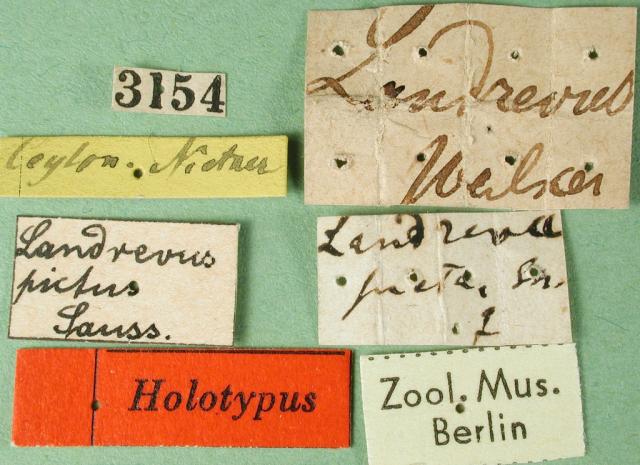 3154
Landrevus
Walker
Ceylon. Nietner
Landrevus
pictus
Sauss.
Landreva
picta, Sss.
1
Holotypus
Zool. Mus.
Berlin